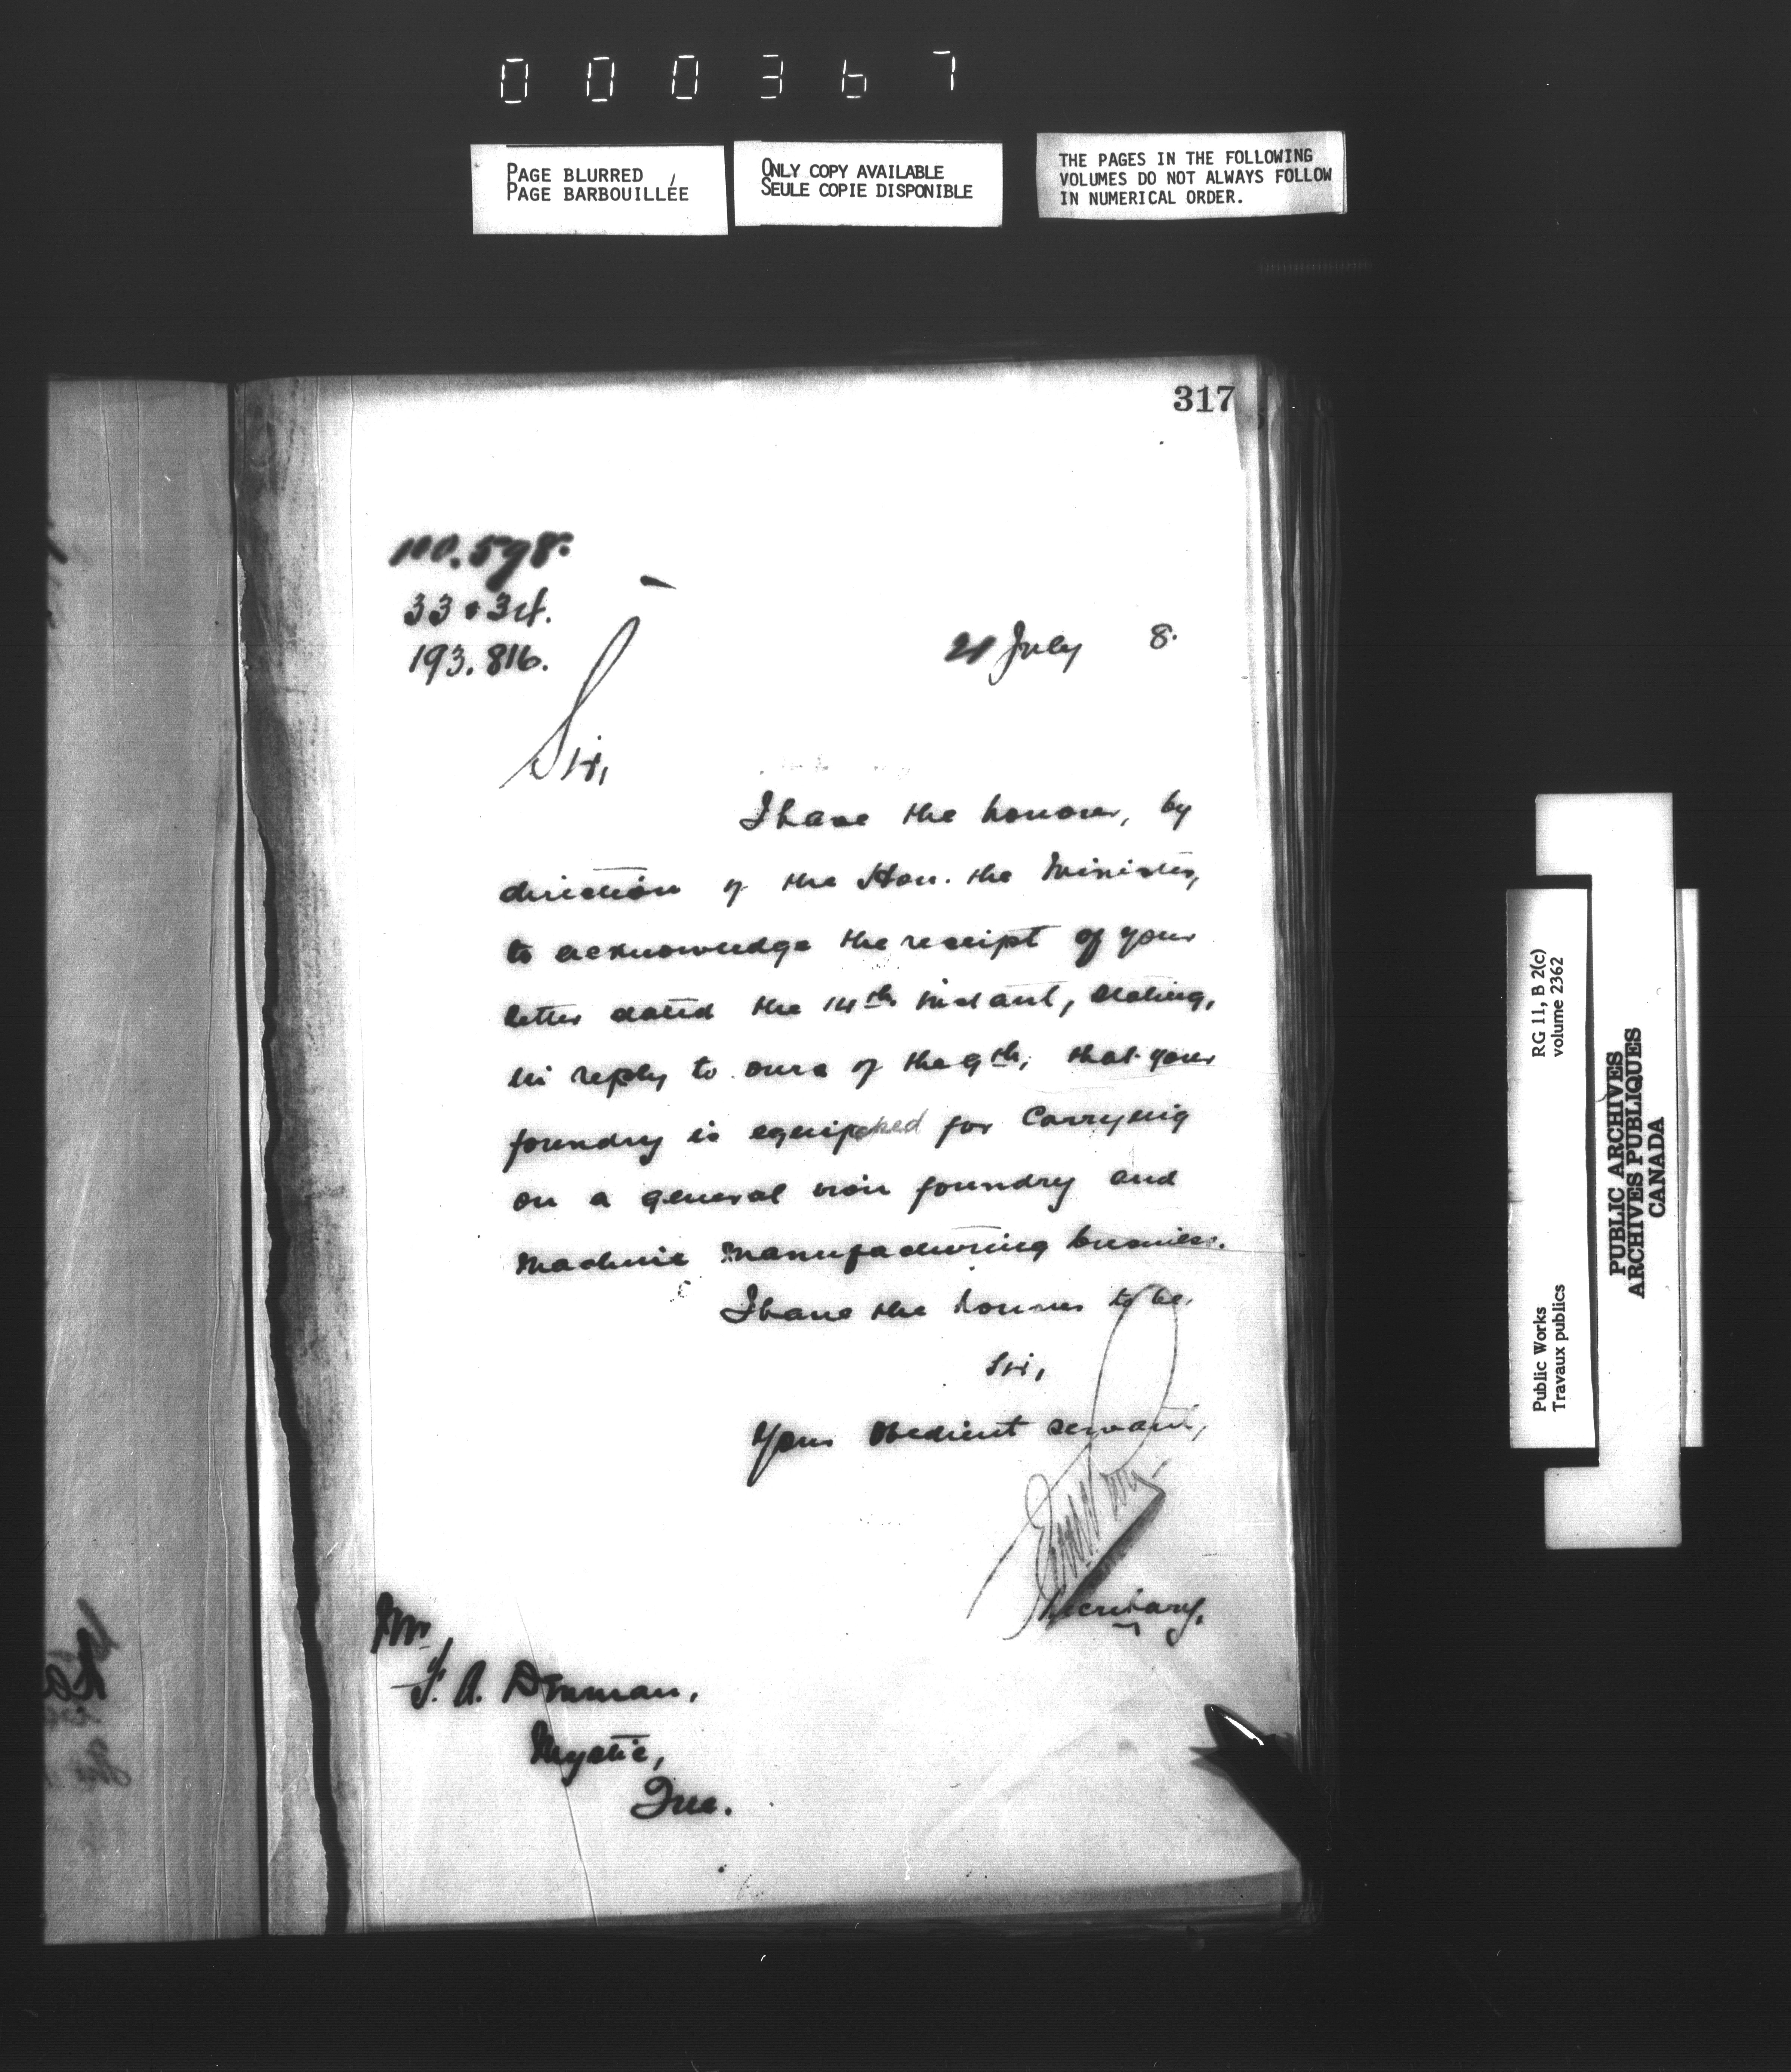 000367
PAGE BLURRED
PAGE BARBOUILLÉE
ONLY COPY AVAILABLE
SEULE COPIE DISPONIBLE
THE PAGES IN THE FOLLOWING
VOLUMES DO NOT ALWAYS FOLLOW
IN NUMERICAL ORDER.
317
100.598.
33+34.
193.816.
21 July 8.
Sir,
I have the honour, by
direction of the Hon. the Minister,
to acknowledge the receipt of your
letter dated the 14th instant, stating,
in reply to ours of the 9th, that your
foundry is equipped for carrying
on a general iron foundry and
machine manufacturing business.
I have the honour to be,
Sir,
Your obedient servant,
Secretary.
Mr
A. Denman,
Mystic,
Que.
RG 11, B 2(c)
volume 2362
Public Works
Travaux publics
PUBLIC ARCHIVES
ARCHIVES PUBLIQUES
CANADA